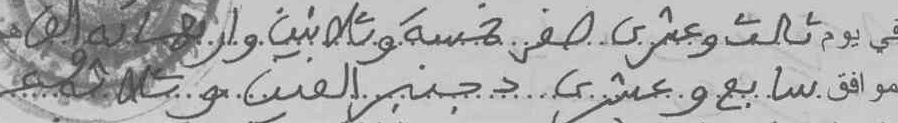 في يوم ثالث وعشرى صفر خمسة وثلاثين واربعمائة الف
موافق سابع وعشرى دجنبر الفين و ثلاثة عشر